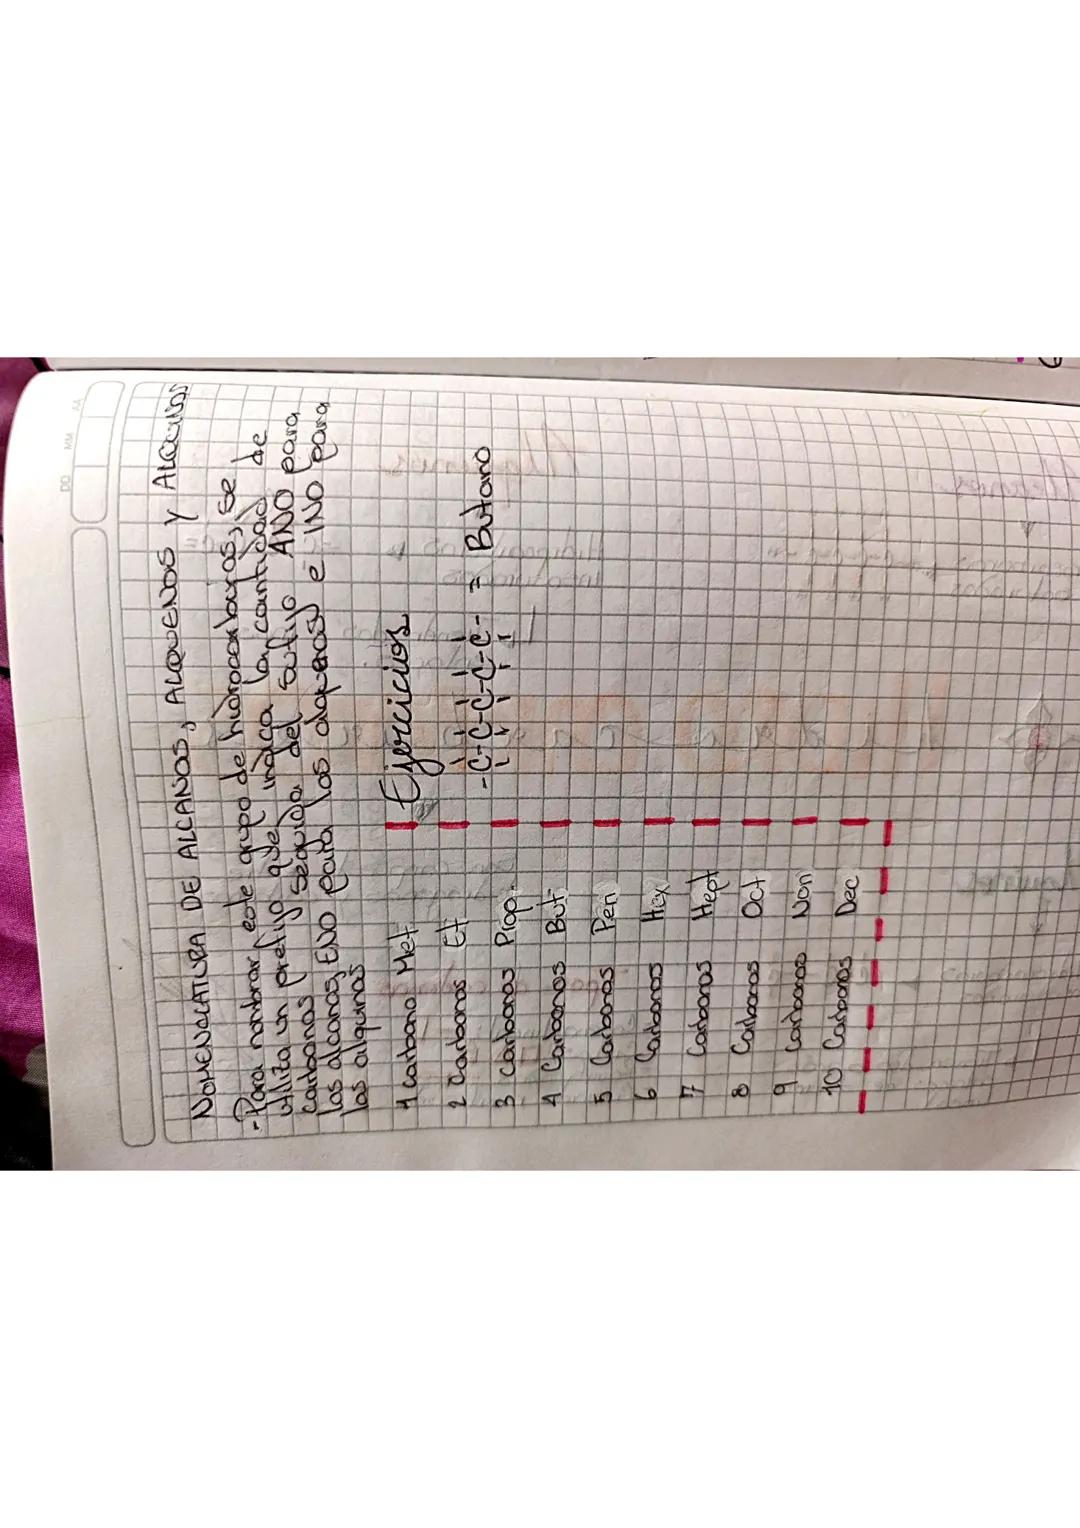 DD MM AA
NOMENCLATURA DE ALCANOS, ALQUENOS Y ALQUINOS
- Para nombrar este grupo de hidrocarburos, se
utiliza un prefijo que indica la cantidad de
carbonos seguida del sufijo ANO para
los alcanos, ENO para los alquenos e INO para
los alquinos
1 Carbono Met.
2 Carbonos Et
3 Carbonos Prop.
4 Carbonos But
5 Carbonos Pen
6 Carbonos Hex
7 Carbonos Hept
8 Carbonos Oct
9 Carbonos Non
10 Carbonos Dec
Ejercicios
-C-C-C-C-C- = Butano